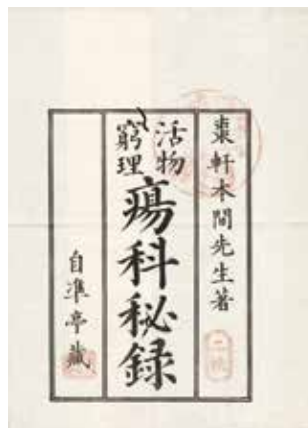 棗軒本間先生著
活物
窮理
瘍科秘録
自準亭藏